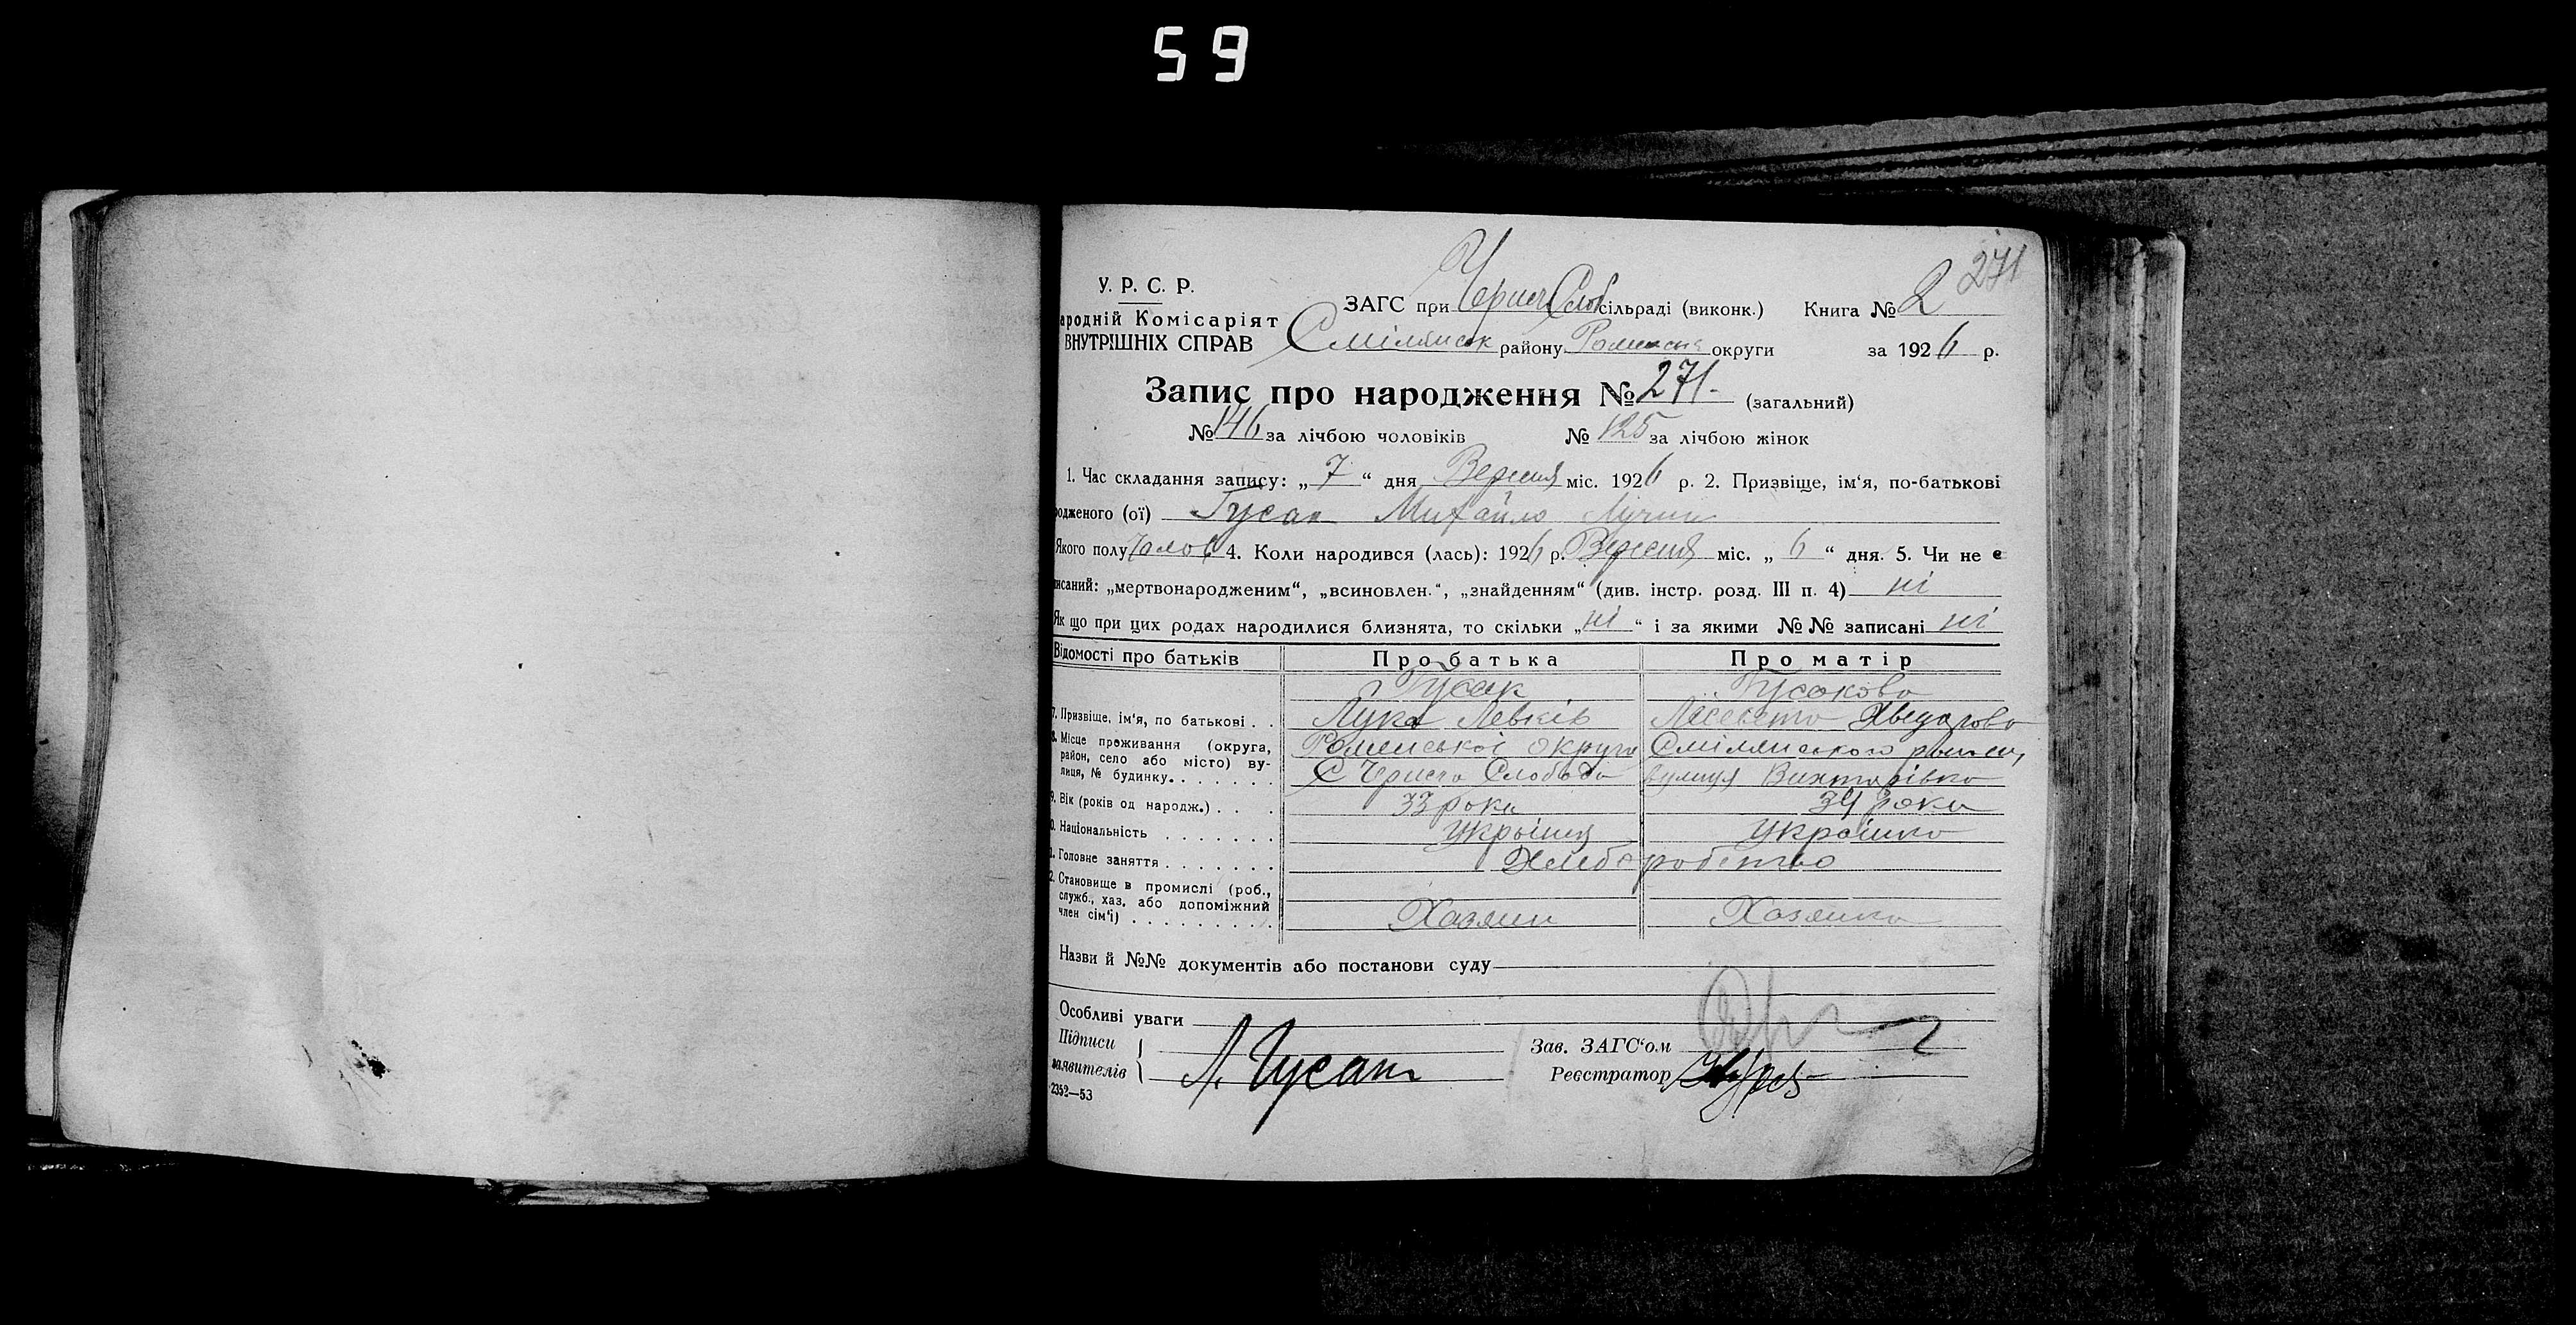 59
271
У. Р. С. Р.
ародній Комісаріят
ВНУТРІШНІХ СПРАВ
ЗАГС при Чернеч Слоб сільраді (виконк.) Книга № 2
Смілянськ району Роменськ округи за 1926 р.
Запис про народження № 271- (загальний)
№ 146 за лічбою чоловіків № 125 за лічбою жінок
1. Час складання запису: „ 7 “ дня Вересня міс. 1926 р. 2. Призвіще, ім‘я, по-батькові
родженого (ої) Гусак Михайло Лучин
Якого полу Чолов 4. Коли народився (лась): 1926 р. Вересня міс. „ 6 “ дня. 5. Чи не є
писаний: „мертвонародженим“, „всиновлен.“, „знайденням“ (див. інстр. розд. III п. 4) ні
Як що при цих родах народилися близнята, то скільки „ ні “ і за якими №№ записані ні
Відомості про батьків Про батька Про матір
Гусак Гусакова
7. Призвіще, ім‘я, по батькові . . Лука Левків Лисевета Хведорова
8. Місце проживання (округа, район, село або місто) ву- Роменської округи Смілянського району,
лиця, № будинку. . . . . . . С Чернеча Слобода вулиця Вихтарівка
9. Вік (років од народж.) . . . 33 роки 34 роки
0. Національність . . . . . . . Україниц Українка
1. Головне заняття . . . . . . . Хліборобство
2. Становище в промислі (роб.,
служб., хаз. або допоміжний
член сім‘ї) . . . . . . . . . . Хазяин Хазяйка
Назви й №№ документів або постанови суду
Особливі уваги
Підписи
заявителів Л. Гусак
Зав. ЗАГС‘ом
Реєстратор
2352—53